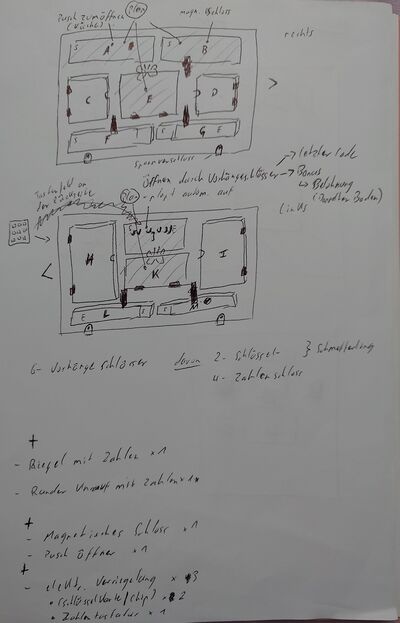 Pusch zum öffnen
magn. Schloss
rechts
S A B S
C E D
F T G E
Spannverschluss
Öffnen durch Vorhängeschlösser
letzter Code
Bonus
Belohnung
(Doppelter Boden)
Tastenfeld an der Rückseite
plopt autom. auf
Links
H I
K
E L
6- Vorhänge Schlösser davon 2- Schlüssel-
4- Zahlenschloss
+
- Riegel mit Zahlen x 1
- Runder mit Zahlen x 1
+
- Magnetisches Schloss x 1
- Pusch Öffner x 1
+
- elektr. Verriegelung x 3
• (Schlüsselkarte/chip) x 2
• Zahlentastatur x 1